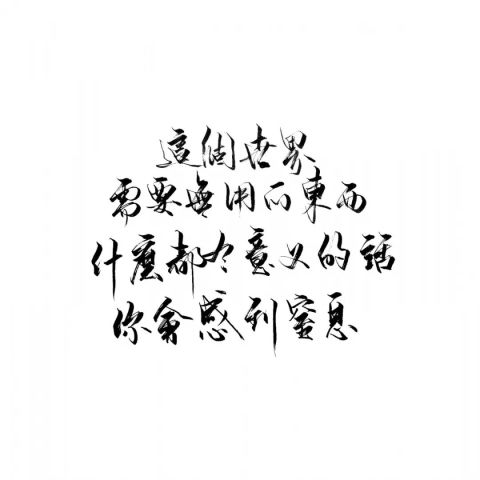 這個世界
需要無用的東西
什麼都有意义的話
你會感到窒息